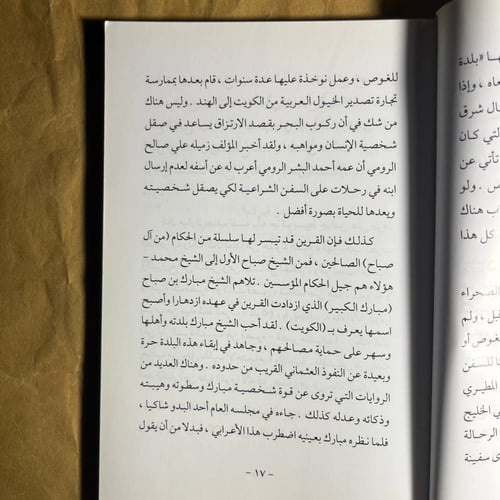 للغوص ، وعمل نوخذة عليها عدة سنوات ، قام بعدها بممارسة
تجارة تصدير الخيول العربية من الكويت إلى الهند . وليس هناك
من شك في أن ركوب البحر بقصد الارتزاق يساعد في صقل
شخصية الإنسان ومواهبه ، ولقد أخبر المؤلف زميله علي صالح
الرومي أن عمه أحمد البشر الرومي أعرب له عن أسفه لعدم إرسال
ابنه في رحلات على السفن الشراعية لكي يصقل شخصيته
ويعدها للحياة بصورة أفضل .
كذلك فإن القرين قد تيسر لها سلسلة من الحكام (من آل
صباح) الصالحين ، فمن الشيخ صباح الأول إلى الشيخ محمد -
هؤلاء هم جيل الحكام المؤسسين . تلاهم الشيخ مبارك بن صباح
(مبارك الكبير) الذي ازدادت القرين في عهده ازدهارا وأصبح
اسمها يعرف بـ (الكويت) . لقد أحب الشيخ مبارك بلدته وأهلها
وسهر على حماية مصالحهم ، وجاهد في إبقاء هذه البلدة حرة
وبعيدة عن النفوذ العثماني القريب من حدوده . وهناك العديد من
الروايات التي تروى عن قوة شخصية مبارك وسطوته وهيبته
وذكائه وعدله كذلك . جاءه في مجلسه العام أحد البدو شاكيا ،
فلما نظره مبارك بعينيه اضطرب هذا الأعرابي ، فبدلا من أن يقول
- ١٧ -
ـها «بلدة
عاه ، وإذا
ال شرق
لتي كان
تأتي عن
ص . ولو
ب هناك
كل هذا
الصحراء
قبل ، ولم
لغوص أو
تا للسفن
المطيري
ي الخليج
الرحالة
ى سفينة